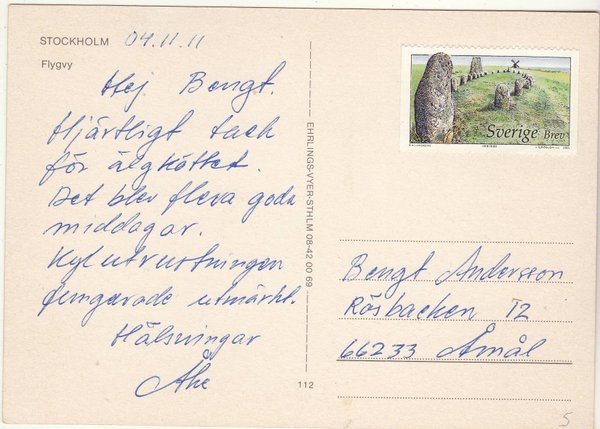 STOCKHOLM 04.11.11
Flygvy
Hej Bengt.
Hjärtligt tack
för älgköttet.
Det blev flera goda
middagar.
Kylutrustningen
fungerade utmärkt.
Hälsningar
Åke
EHRLINGS-VYER-STHLM 08-42 00 69
112
Sverige Brev
Bengt Andersson
Rösbacken 12
66233 Åmål
5